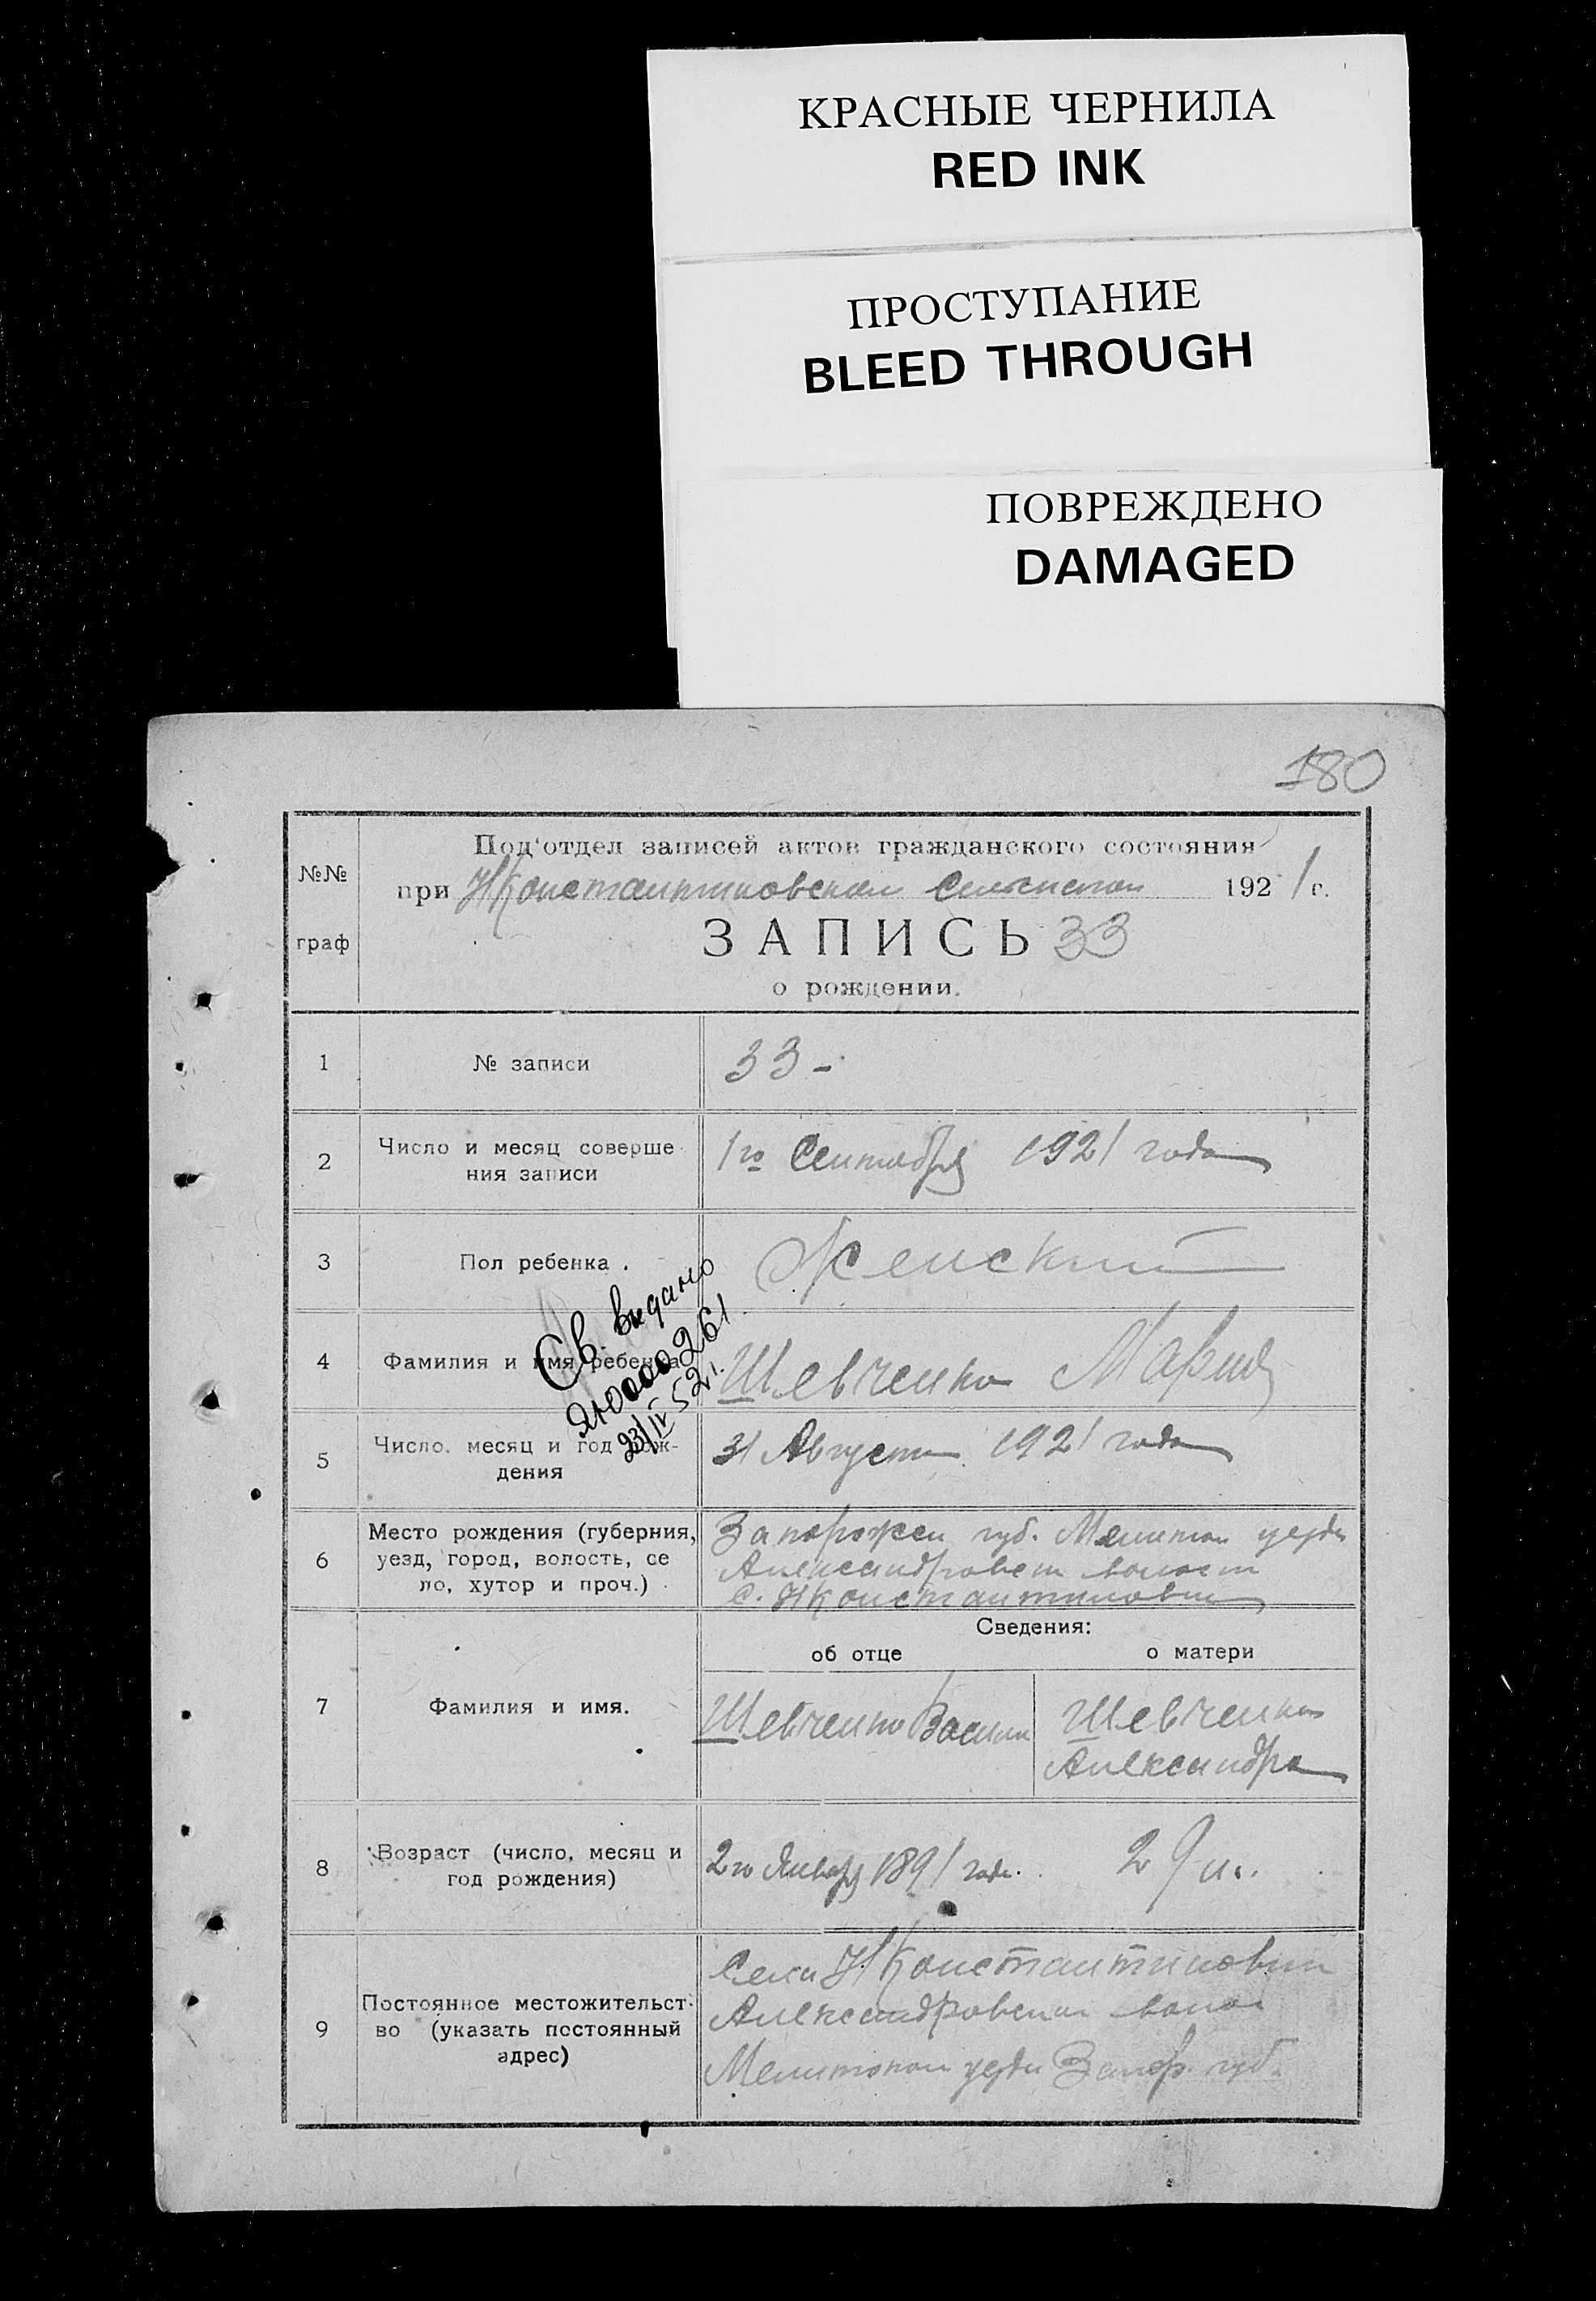 КРАСНЫЕ ЧЕРНИЛА
RED INK
ПРОСТУПАНИЕ
BLEED THROUGH
ПОВРЕЖДЕНО
DAMAGED
180
№№ граф
Под'отдел записей актов гражданского состояния
при НКонстантиновском 1921 г.
ЗАПИСЬ 33
о рождении.
1 № записи 33 -
2 Число и месяц соверше
ния записи
1го Сентября 1921 года
3 Пол ребенка . Женский
Св. выдано
ЯЮ 000261
23/IV 52 г.
4 Фамилия и имя ребенка Шевченко Мария
5 Число. месяц и год рож-
дения
31 Августа 1921 года
6 Место рождения (губерния,
уезд, город, волость, се
ло, хутор и проч.)
Запорожск губ. Мелитоп уезда
Александровск волости
с. НКонстантиновки
Сведения:
об отце о матери
7 Фамилия и имя.
Шевченко Васили
Шевченко
Александра
8 Возраст (число, месяц и
год рождения)
2го Января 1891 года. 29 л.
9 Постоянное местожительст-
во (указать постоянный
адрес)
Села НКонстантиновки
Александровской воло
Мелитопол уезда Запор. губ.